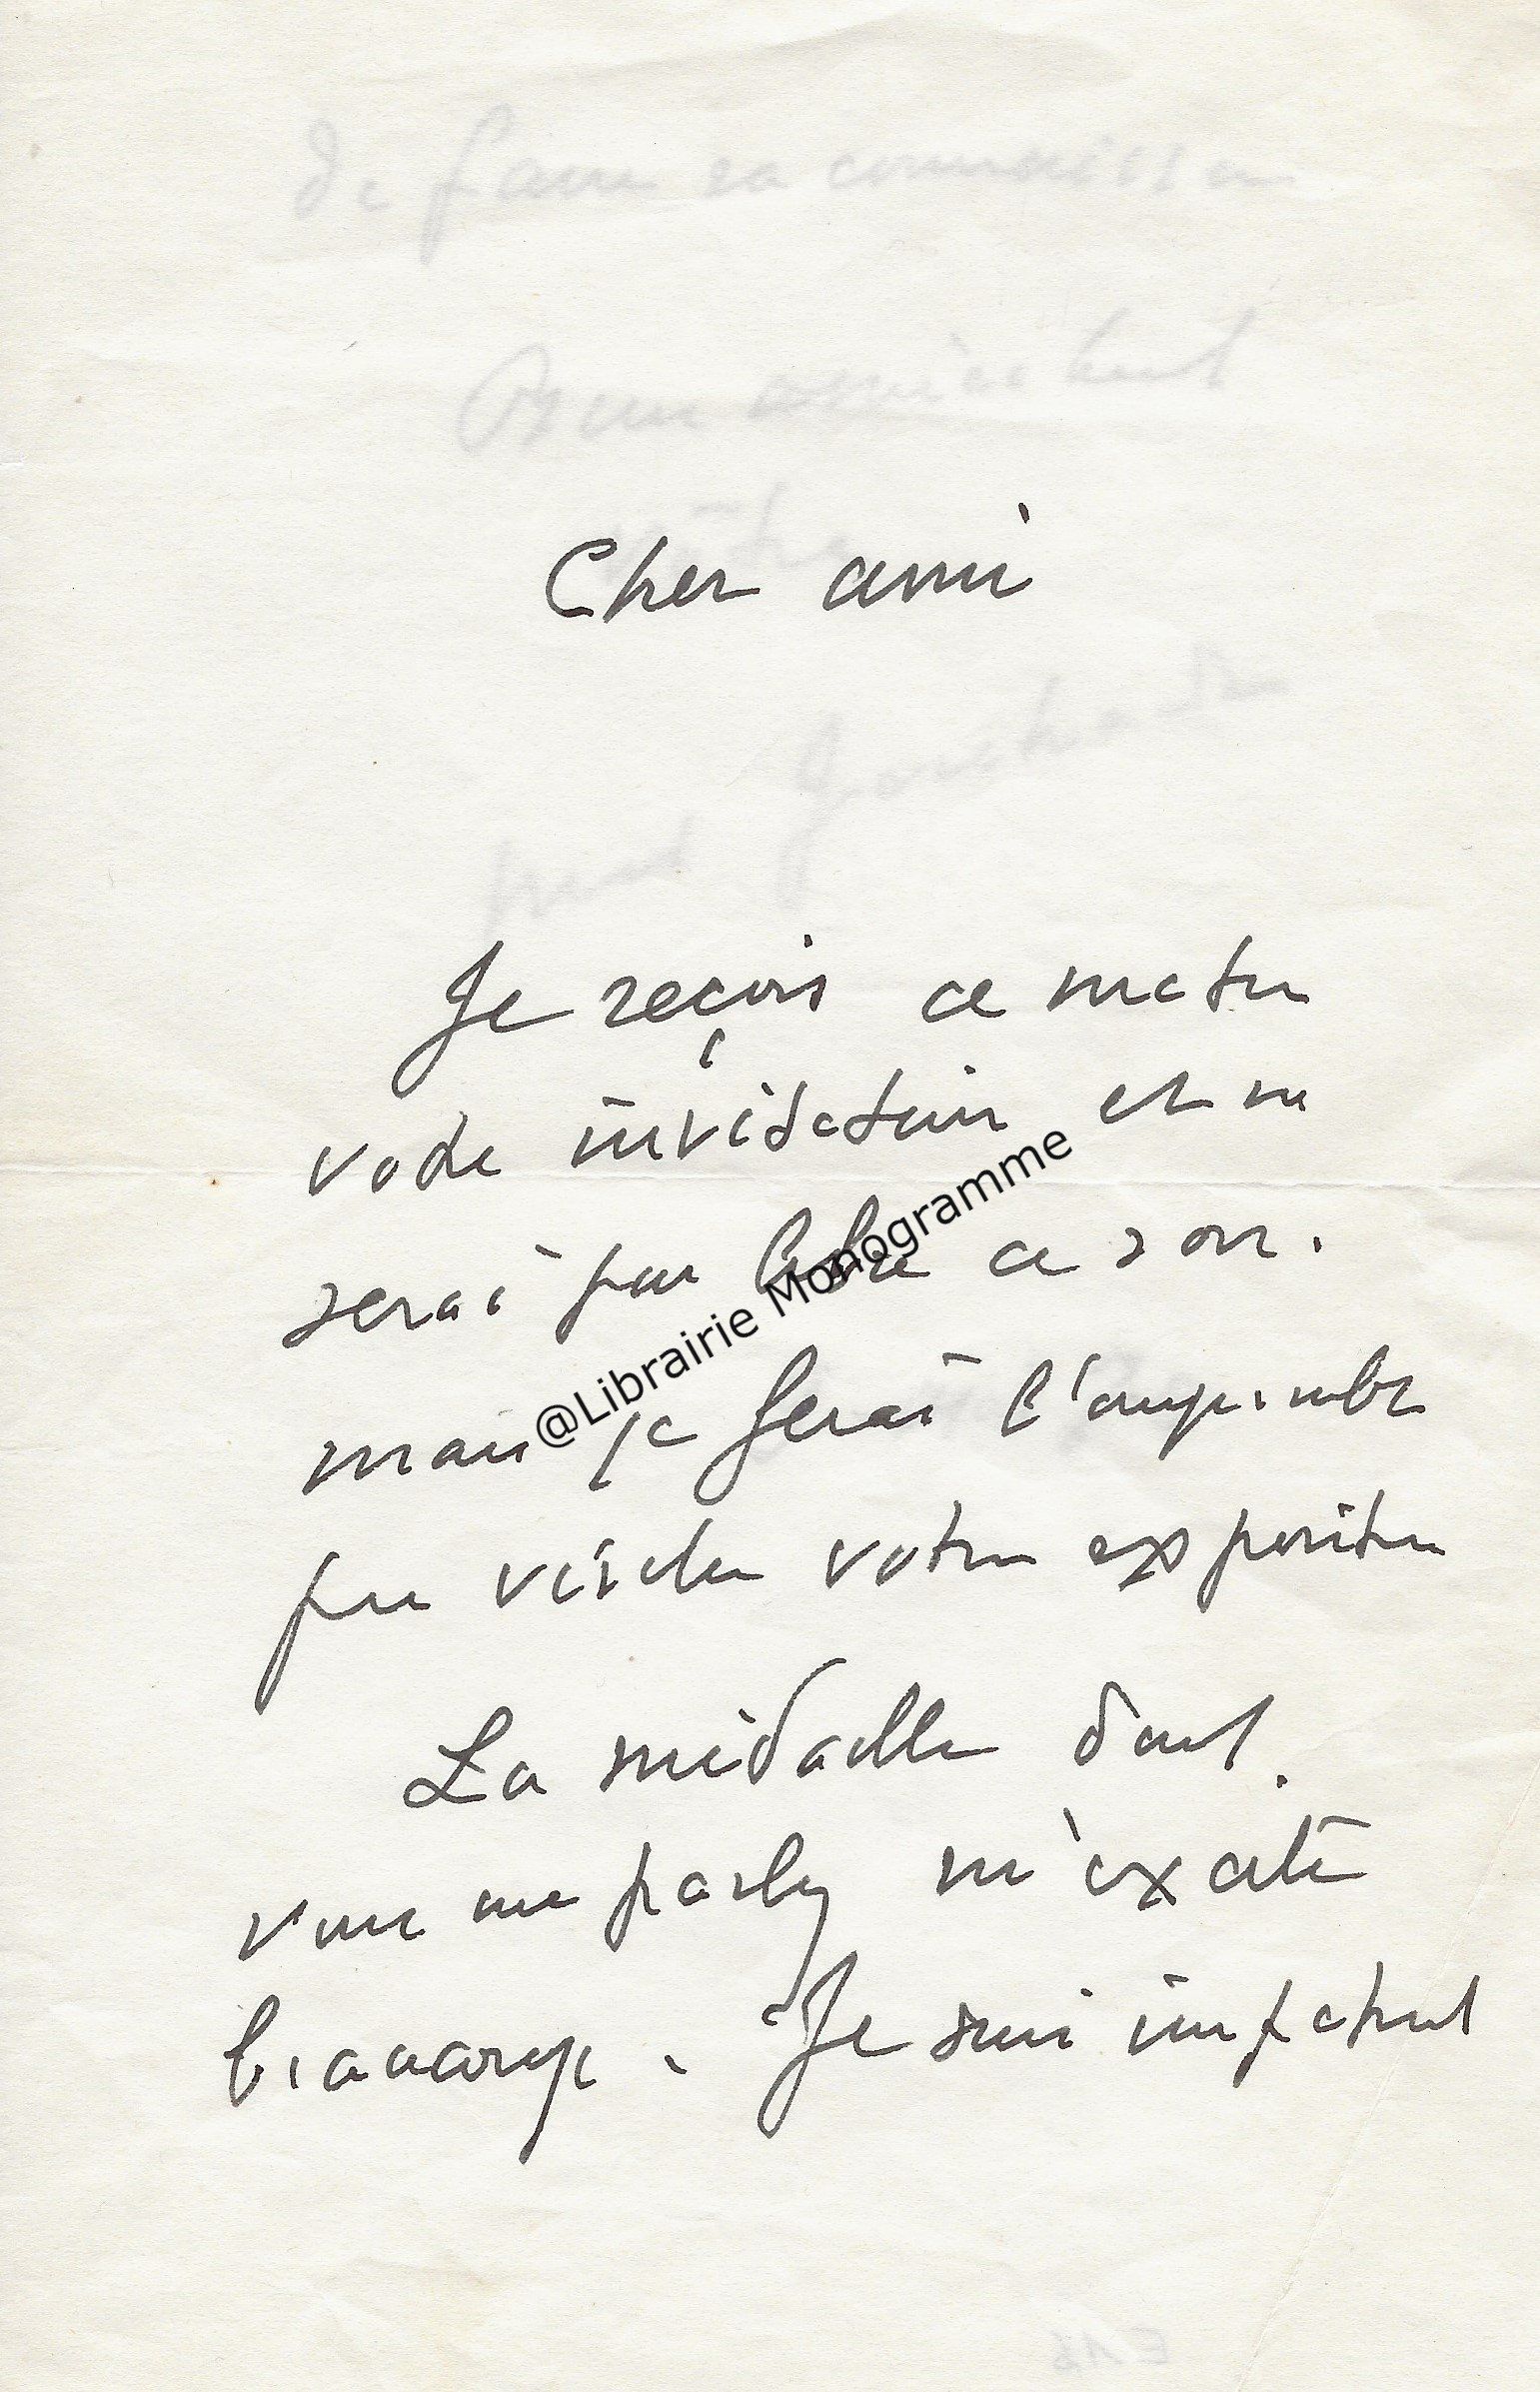 Cher ami
Je reçois ce matin
votre invitation et ne
serai pas libre ce soir.
mais je ferai l'impossible
pour visiter votre exposition
La médaille dont
vous me parlez m'excite
beaucoup. Je suis impatient
@Librairie Monogramme
de faire sa connaissance
Bien amicalement
vôtre